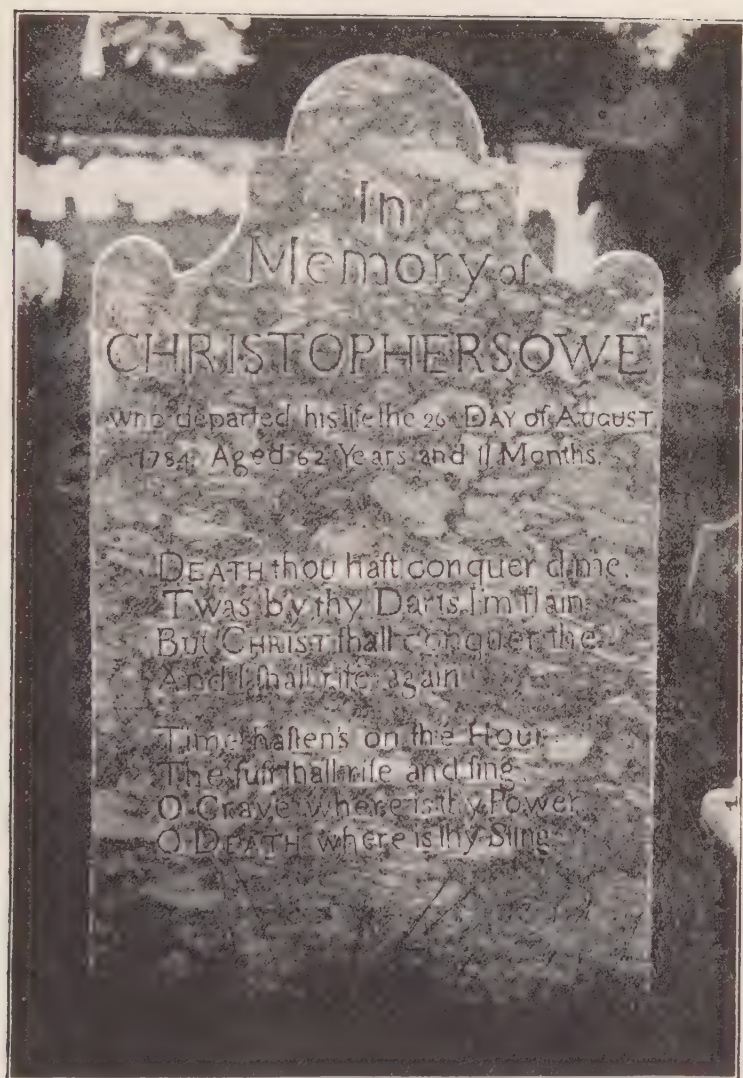 In
Memory of
CHRISTOPHER SOWEr
who departed this life the 26th DAY of AUGUST
1784, Aged 62 Years and 11 Months.
DEATH thou haſt conquer'd me.
T'was by thy Darts I'm ſlain
But CHRIST ſhall conquer the
And I ſhall riſe again
Time haſten's on the Hour
The juſt ſhall riſe and ſing
O Grave where is thy Power
O DEATH where is thy Sting